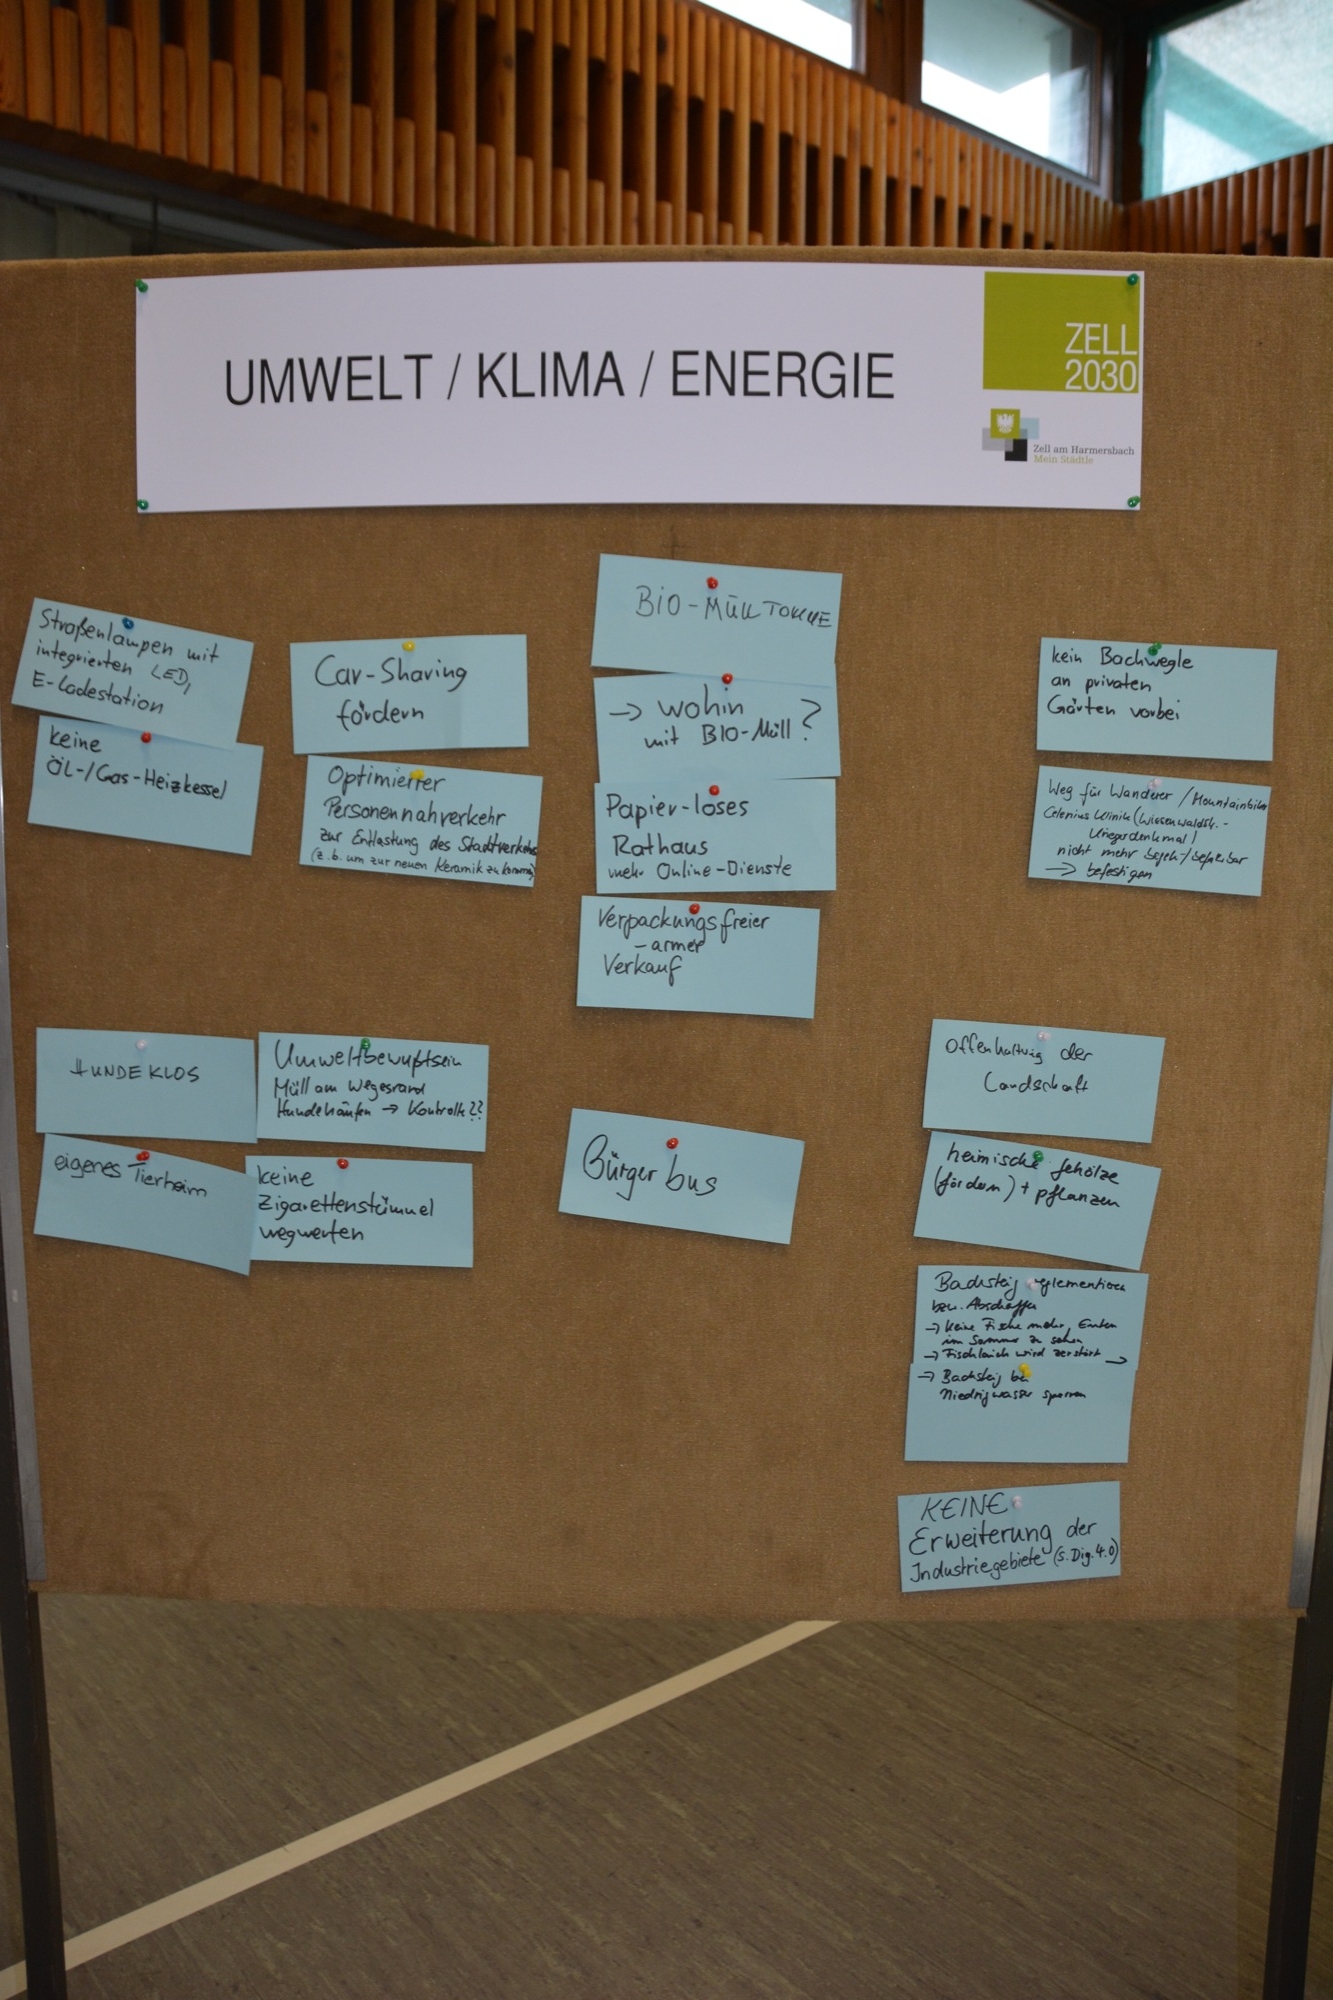 UMWELT / KLIMA / ENERGIE
ZELL
2030
Zell am Harmersbach
Mein Städtle
Straßenlampen mit
integrierten LED,
E-Ladestation
keine
ÖL-/Gas-Heizkessel
Car-Sharing
fördern
Optimierter
Personennahverkehr
zur Entlastung des Stadtverkehrs
(z.b. um zur neuen Keramik zu kommen)
BIO-MÜLLTONNE
→ wohin
mit BIO-Müll?
Papier-loses
Rathaus
mehr Online-Dienste
Verpackungsfreier
-armer
Verkauf
kein Bachwegle
an privaten
Gärten vorbei
Weg für Wanderer / Mountainbiker
Celenius Klinik (Wiesenwaldstr.-
Kriegerdenkmal)
nicht mehr
→ befestigen
HUNDEKLOS
eigenes Tierheim
Umweltbewußtsein
Müll am Wegesrand
Hundehäufen → Kontrolle??
keine
Zigarettenstümmel
wegwerfen
Bürgerbus
Offenhaltung der
Landschaft
heimische Gehölze
(fördern) + pflanzen
Bachsteig reglementieren
bzw. Abschaffen
→ Keine Fische mehr, Enten
im Sommer zu sehen
→ Fischlaich wird zerstört →
→ Bachsteig bei
Niedrigwasser sperren
KEINE
Erweiterung der
Industriegebiete (s. Dig. 4.0)